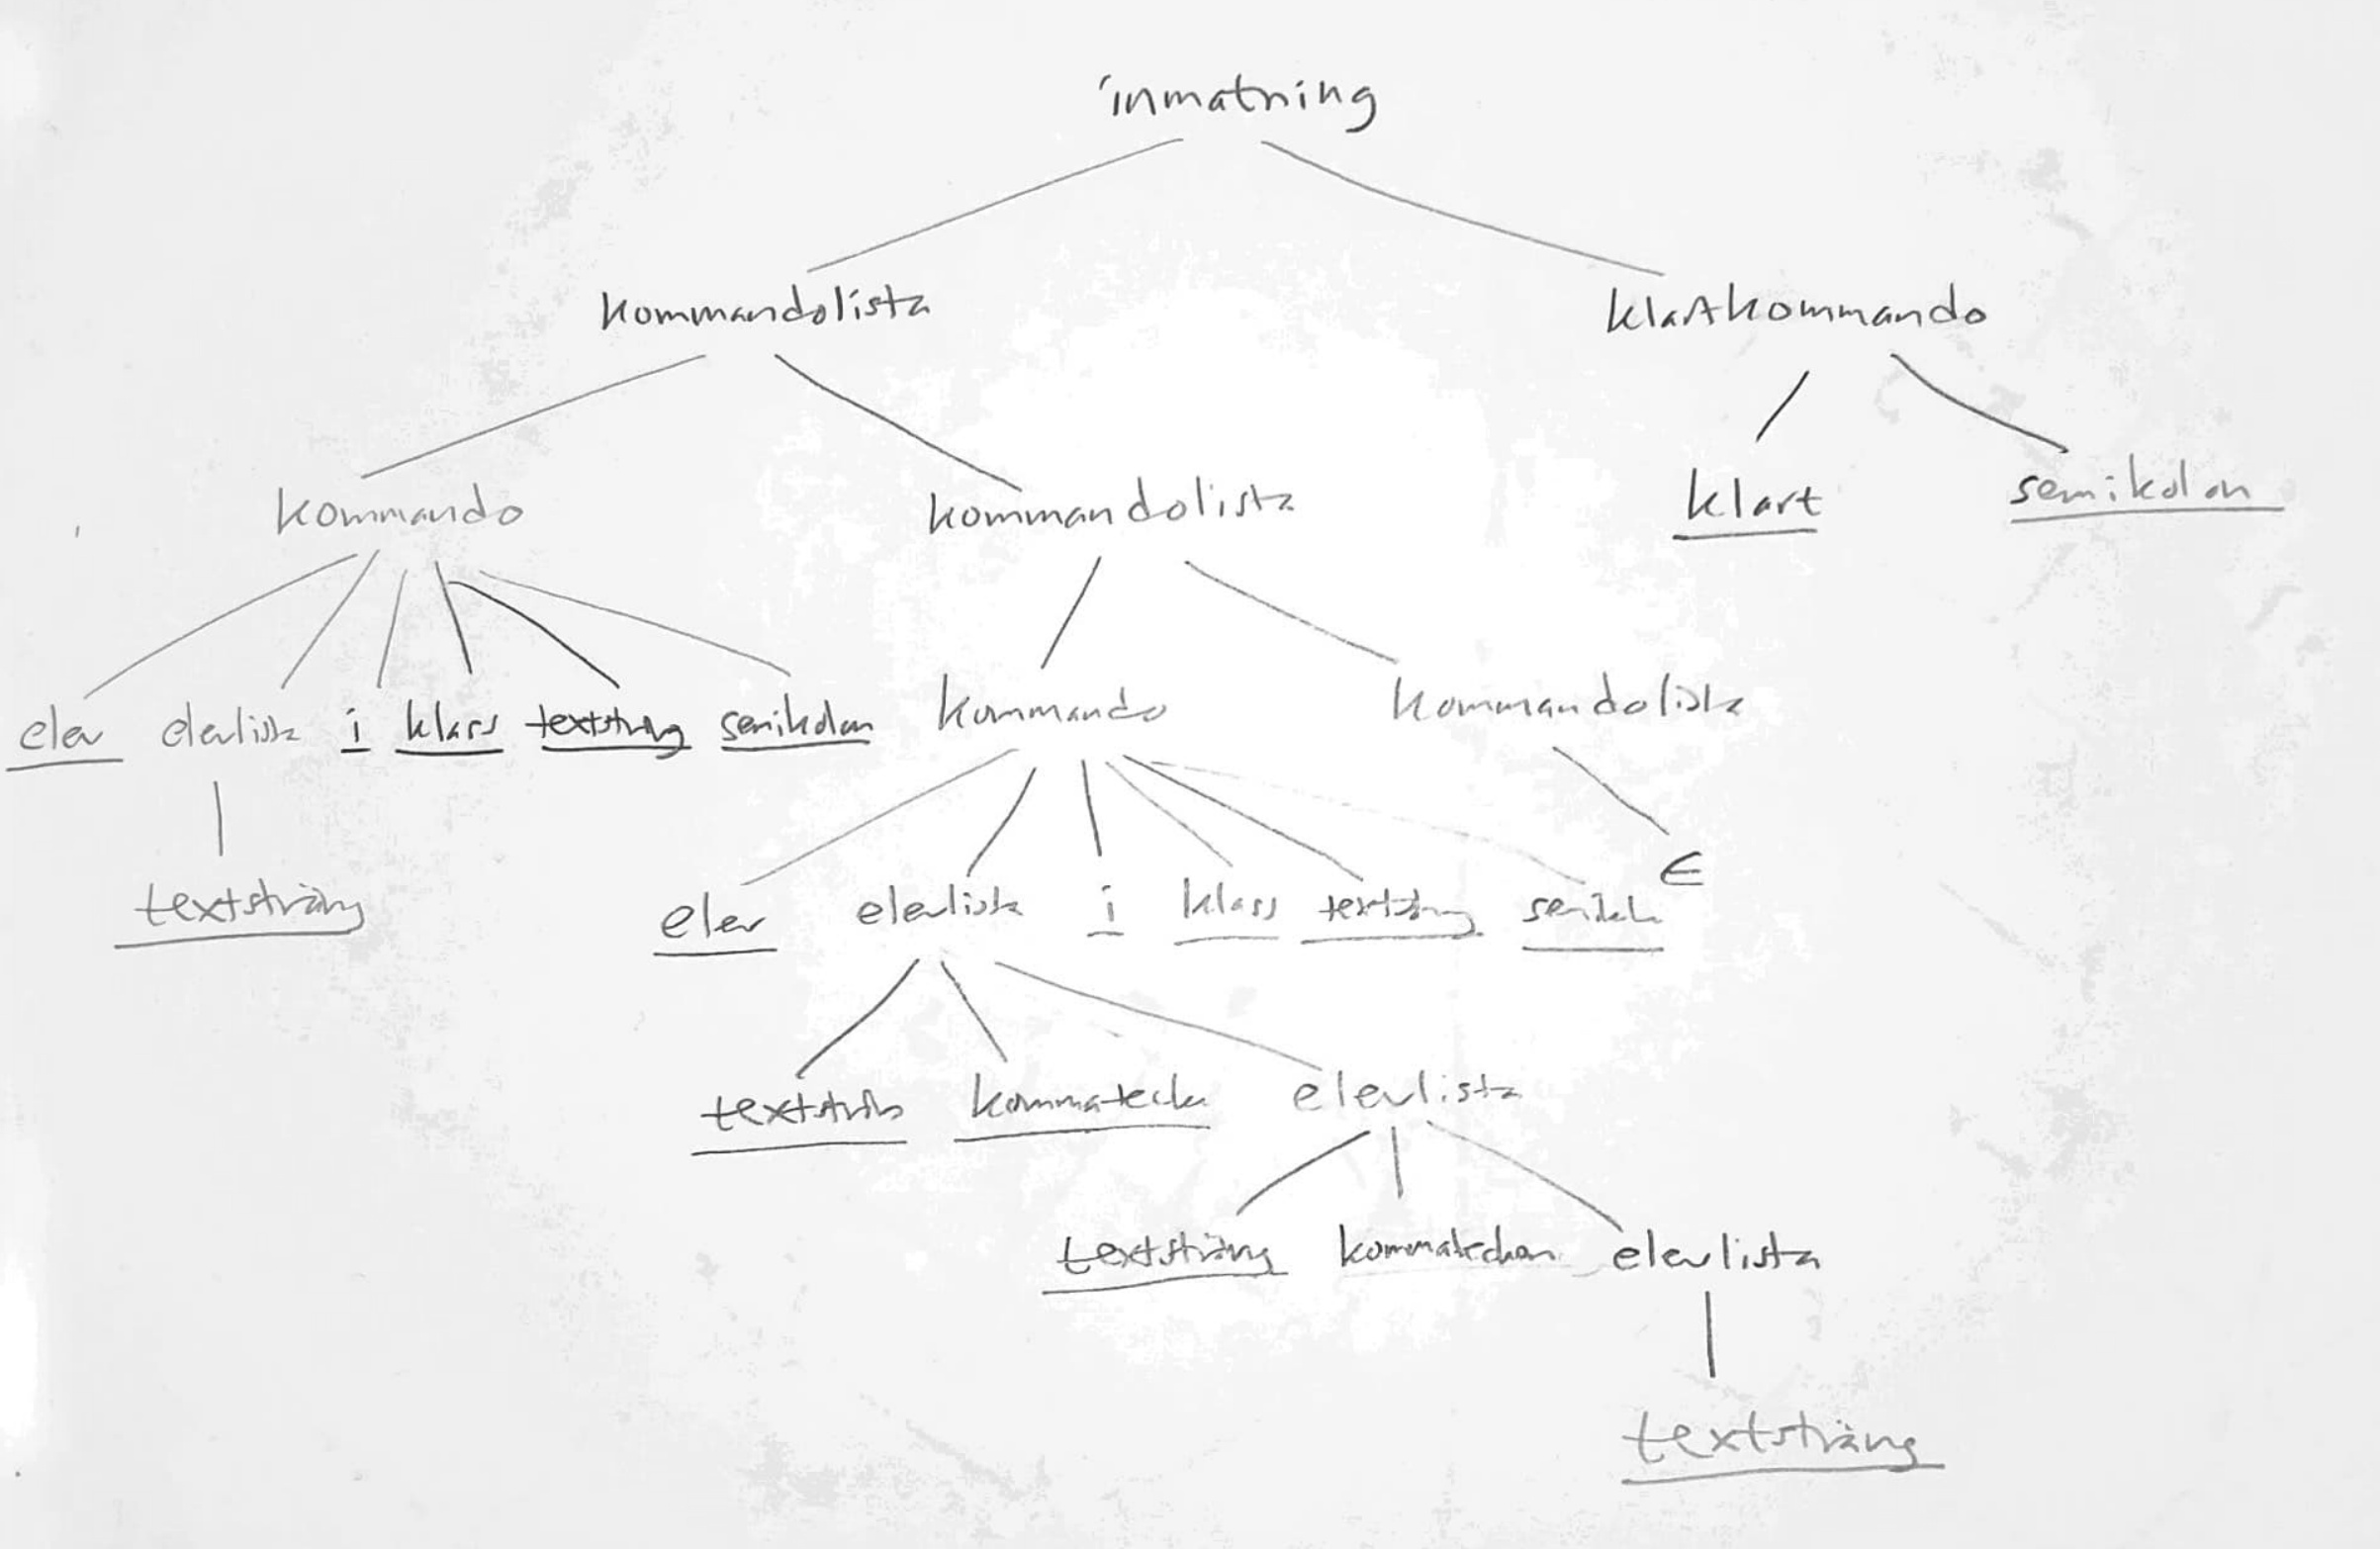 inmatning
kommandolista klartkommando
kommando kommandolista klart semikolon
elev elevlista i klass textsträng semikolon kommando kommandolista
textsträng elev elevlista i klass textsträng ∈
kommatecken elevlista
textsträng kommatecken elevlista
textsträng